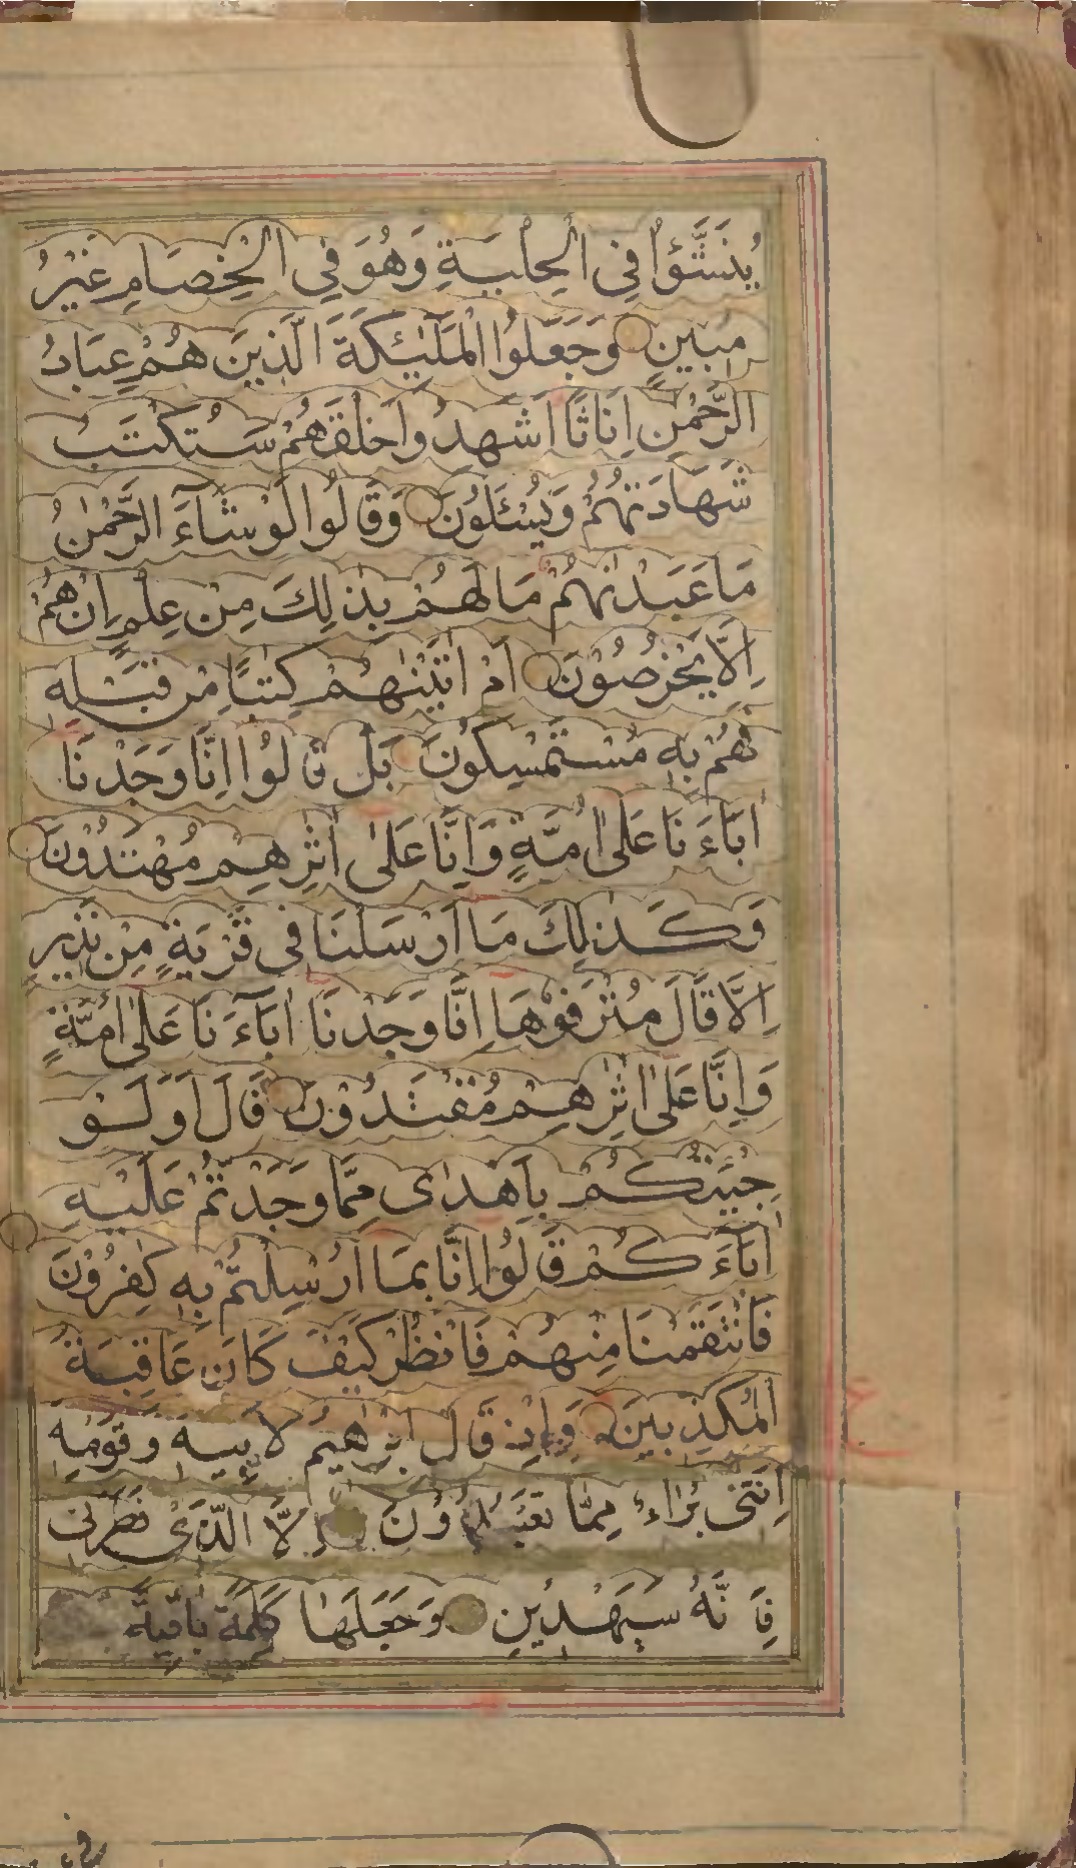 يُنَشَّؤُا فِي الْحِلْيَةِ وَهُوَ فِي الْخِصَامِ غَيْرُ
مُبِينٍ وَجَعَلُوا الْمَلٰئِكَةَ الَّذِينَ هُمْ عِبَادُ
الرَّحْمٰنِ اِنَاثًا اَشَهِدُوا خَلْقَهُمْ سَتُكْتَبُ
شَهَادَتُهُمْ وَيُسْئَلُونَ وَقَالُوا لَوْ شَآءَ الرَّحْمٰنُ
مَا عَبَدْنٰهُمْ مَا لَهُمْ بِذٰلِكَ مِنْ عِلْمٍ اِنْ هُمْ
اِلَّا يَخْرُصُوْنَ اَمْ اٰتَيْنٰهُمْ كِتٰبًا مِنْ قَبْلِهِ
فَهُمْ بِهِ مُسْتَمْسِكُونَ بَلْ قَالُوْا اِنَّا وَجَدْنَا
اٰبَآءَنَا عَلٰى اُمَّةٍ وَاِنَّا عَلٰى اٰثٰرِهِمْ مُهْتَدُوْنَ
وَكَذٰلِكَ مَا اَرْسَلْنَا فِى قَرْيَةٍ مِنْ نَذِيرٍ
اِلَّا قَالَ مُتْرَفُوْهَا اِنَّا وَجَدْنَا اٰبَآءَنَا عَلٰى اُمَّةٍ
وَاِنَّا عَلٰى اٰثٰرِهِمْ مُقْتَدُوْنَ قَالَ اَوَلَوْ
جِئْتُكُمْ بِاَهْدٰى مِمَّا وَجَدْتُمْ عَلَيْهِ
اٰبَآءَكُمْ قَالُوْا اِنَّا بِمَا اُرْسِلْتُمْ بِهِ كٰفِرُوْنَ
فَانْتَقَمْنَا مِنْهُمْ فَانْظُرْ كَيْفَ كَانَ عَاقِبَةُ
الْمُكَذِّبِينَ وَاِذْ قَالَ اِبْرٰهِيمُ لِاَبِيهِ وَقَوْمِهِ
اِنَّنِى بَرَاءٌ مِمَّا تَعْبُدُوْنَ اِلَّا الَّذِىْ فَطَرَنِى
فَاِنَّهُ سَيَهْدِيْنِ وَجَعَلَهَا كَلِمَةً بَاقِيَةً